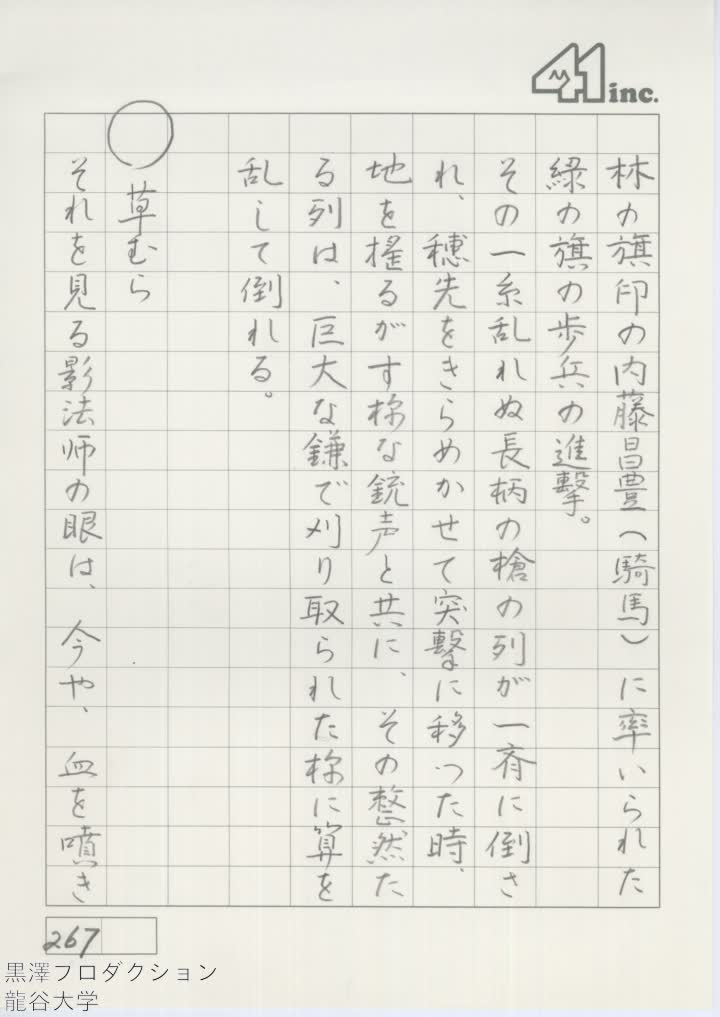 41 inc.
林の旗印の内藤昌豊（騎馬）に率いられた
緑の旗の歩兵の進撃。
その一糸乱れぬ長柄の槍の列が一斉に倒さ
れ、穂先をきらめかせて突撃に移った時、
地を搖るがす様な銃声と共に、その整然た
る列は、巨大な鎌で刈り取られた様に算を
乱して倒れる。
○草むら
それを見る影法師の眼は、今や、血を噴き
267
黒澤プロダクション
龍谷大学